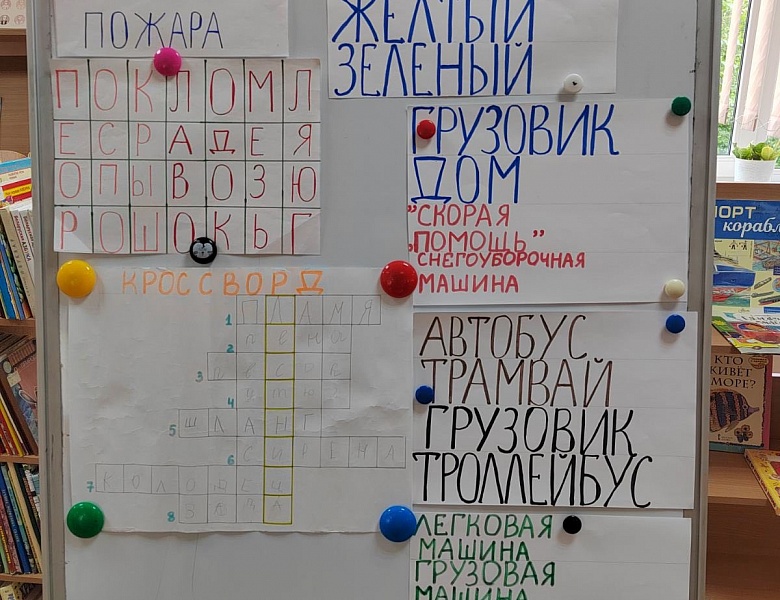 ПОЖАРА
П О К Л О М Л
Е С Р А Д Е Я
О П Ы В О З Ю
Р О Ш О К Ь Г
КРОССВОРД
1 ПЛАМЯ
2
3 ПЕСОК
4
5 ШЛАНГ
6 СИГНАЛ
7 КОЛОДЕЦ
8
ЖЁЛТЫЙ
ЗЕЛЕНЫЙ
ГРУЗОВИК
ДОМ
"СКОРАЯ
ПОМОЩЬ"
СНЕГОУБОРОЧНАЯ
МАШИНА
АВТОБУС
ТРАМВАЙ
ГРУЗОВИК
ТРОЛЛЕЙБУС
ЛЕГКОВАЯ
МАШИНА
ГРУЗОВАЯ
МАШИНА
СПОРТ
корабл
КТО
ЖИВЁТ
В МОРЕ?